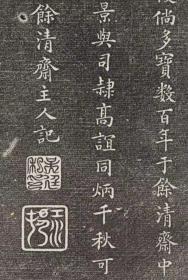 倘多寶數百年于餘清齋中
景與司隷高誼同炳千秋可
餘清齋主人記